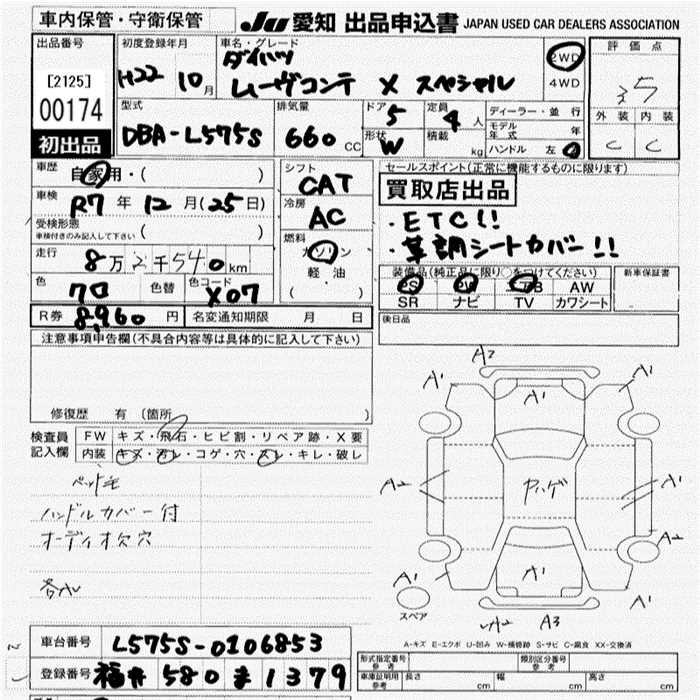 車内保管・守衛保管
JU 愛知 出品申込書 JAPAN USED CAR DEALERS ASSOCIATION
出品番号
[2125]
00174
初出品
初度登録年月
H22 10月
車名・グレード
ダイハツ
ムーヴコンテ X スペシャル
2WD
4WD
評価点
3.5
外装 内装
C C
型式
DBA-L575S
排気量
660 cc
ドア 5
形状 W
定員 4 人
積載 kg
ディーラー・並行
モデル年式 年
ハンドル 左
車歴
自家用・( )
車検
R7 年 12 月(25日)
受検形態
車検付きのみ記入して下さい ( )
走行
8万2千540km
色
クロ
色替
色コード
X07
シフト
CAT
冷房
AC
燃料
ガソリン
軽油
( )
セールスポイント(正常に機能するものに限ります)
買取店出品
・ETC!!
・革調シートカバー!!
装備品(純正品に限り○をつけてください)
PS PW AB AW
SR ナビ TV カワシート
新車保証書
後日品
R券 8,960 円
名変通知期限 月 日
注意事項申告欄(不具合内容等は具体的に記入して下さい)
修復歴 有 [箇所 ]
検査員
記入欄
FW キズ・飛石・ヒビ割・リペア跡・X要
内装 キズ・汚レ・コゲ・穴・スレ・キレ・破レ
ペット毛
ハンドルカバー付
オーディオ欠穴
A2
A1
A1
A1
A2
ヤハゲ
A1
A2
A1
A1
A1
スペア
A3
A-キズ E-エクボ U-凹み W-補修跡 S-サビ C-腐食 XX-交換済
車台番号 L575S-0106853
登録番号 福井 580 ま 1379
形式指定番号 参考
類別区分番号 参考
車庫証明用 参考 長さ cm 幅 cm 高さ cm